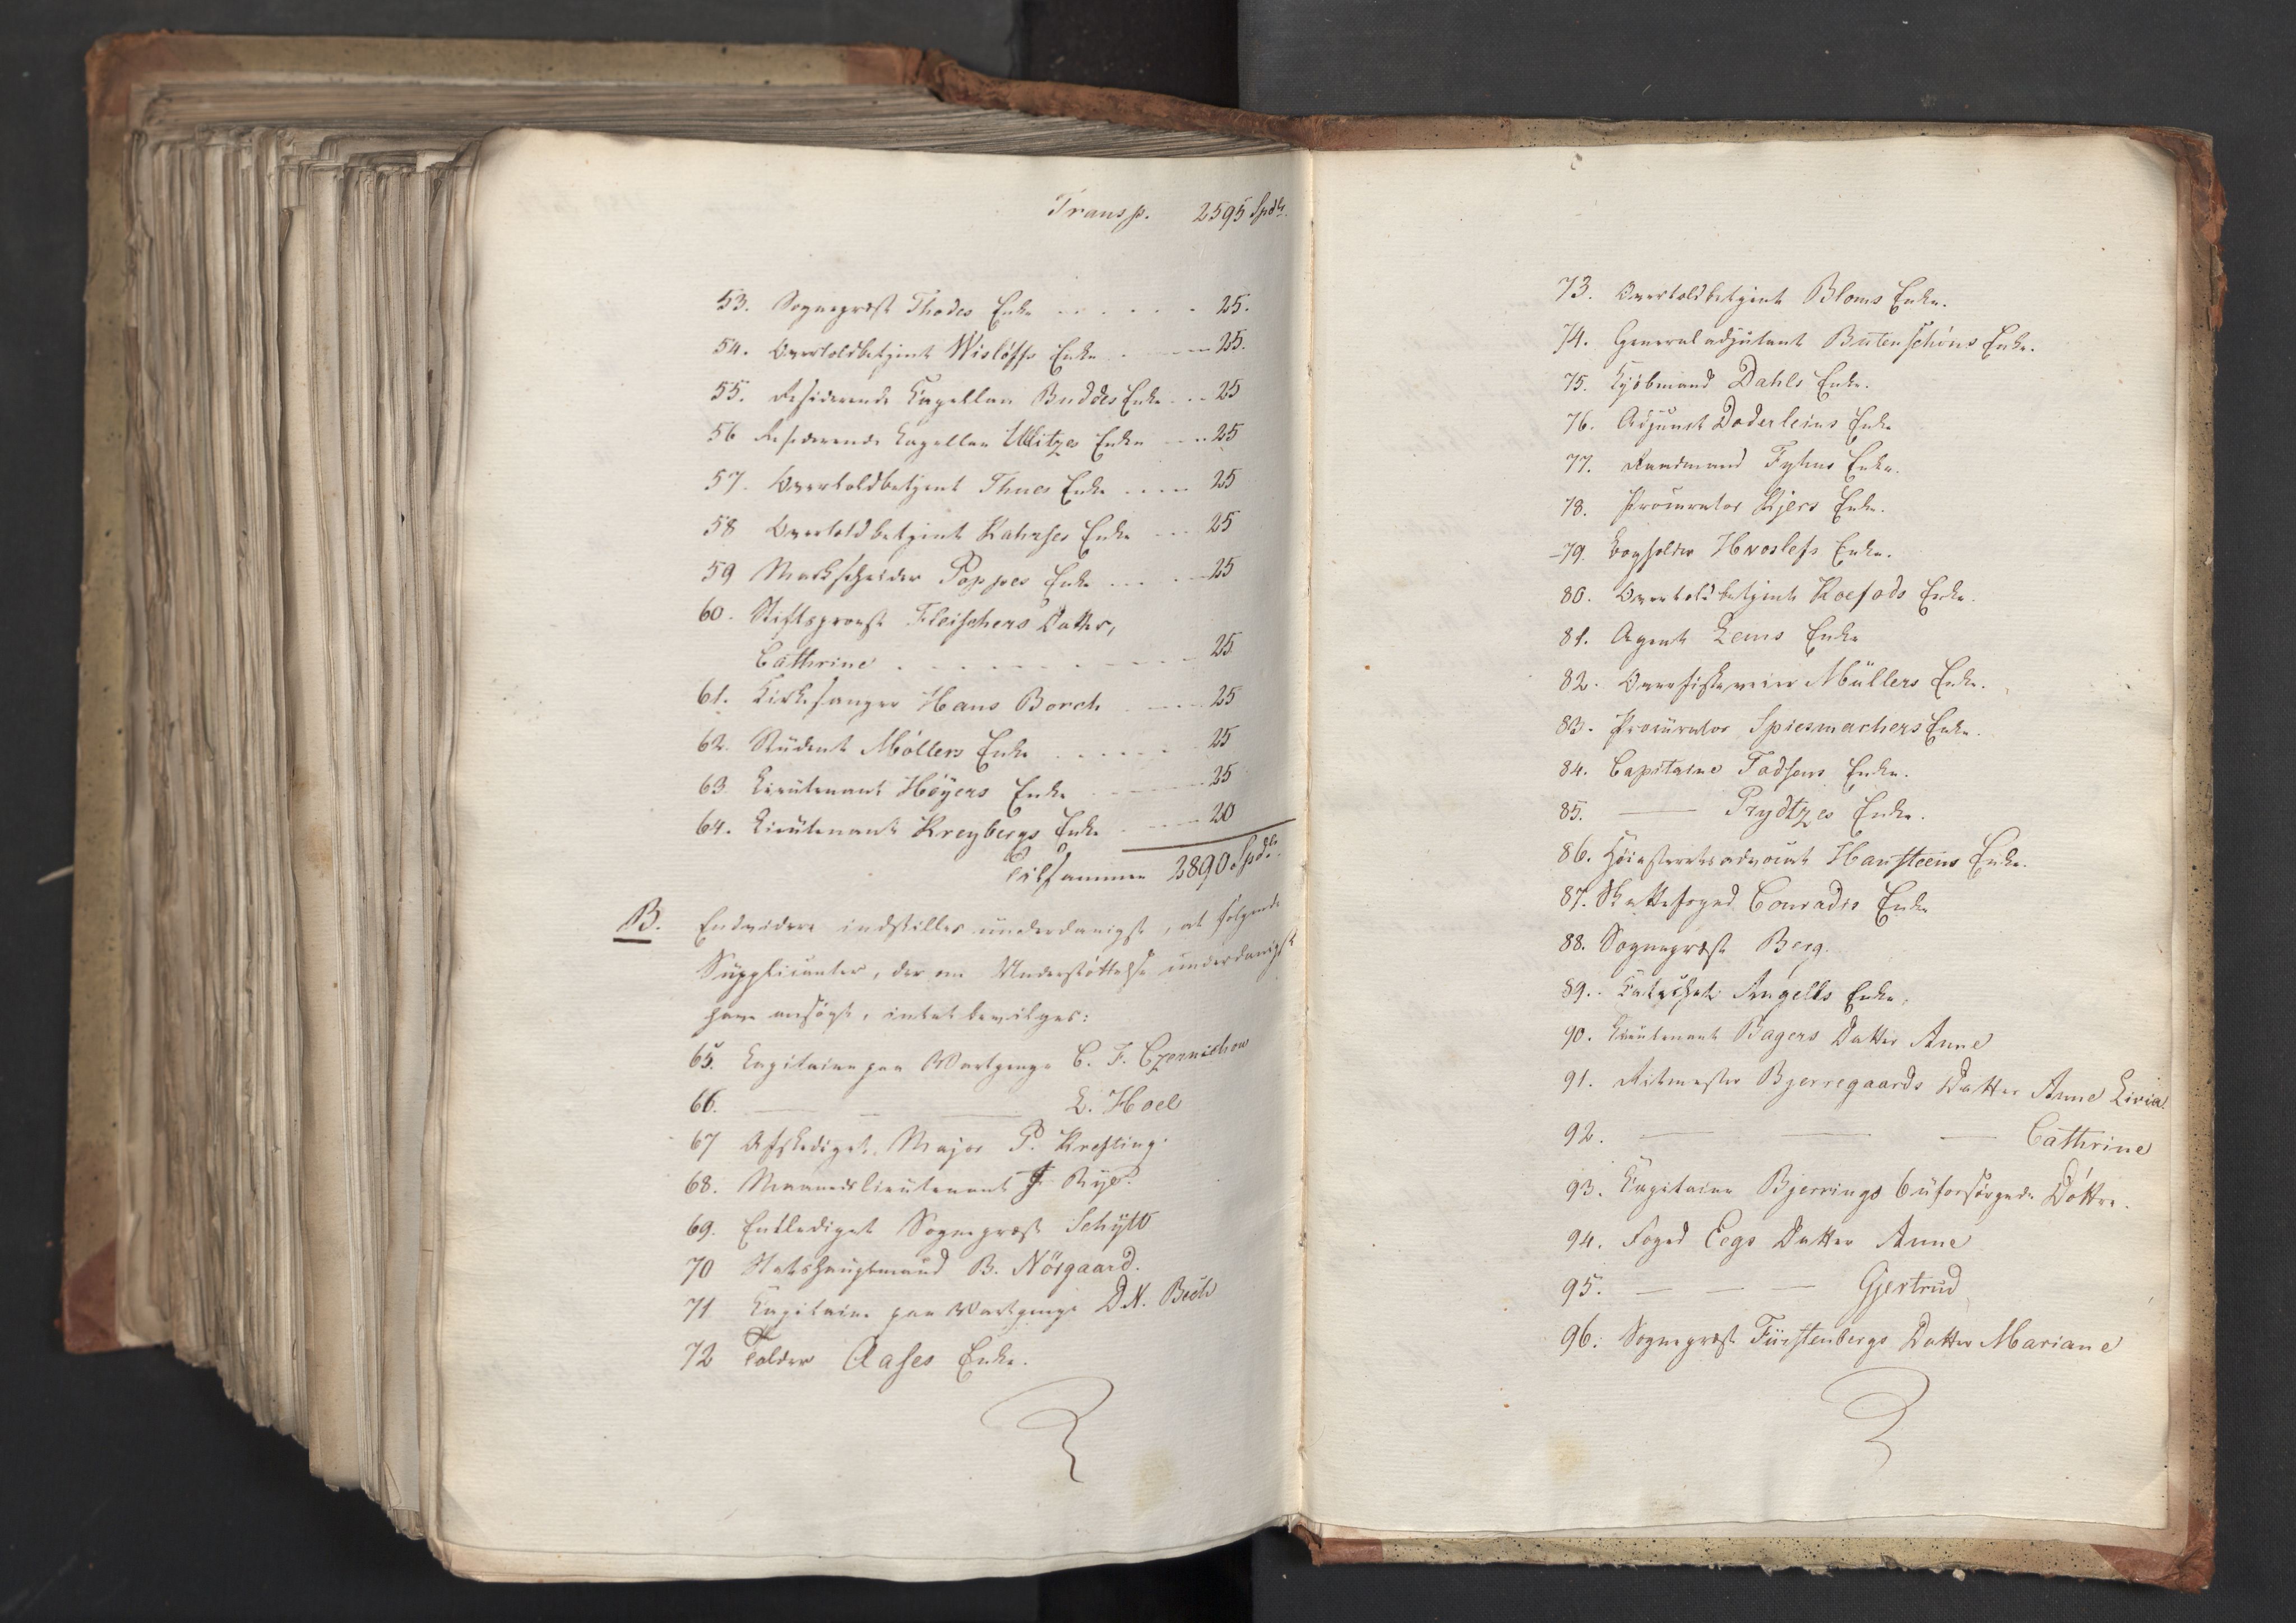 Transp. 2595 Spdlr.
53. Sognepræst Thodes Enke . . . . . . 25.
54. Overtoldbetjent Wisløffs Enke . . . 25.
55. Residerende Capellan Buddes Enke . . 25
56 Residerende Capellan Ulitzes Enke . . 25
57. Overtoldbetjent Thues Enke . . . . 25
58 Overtoldbetjent Kahrses Enke . . . 25
59 Markscheider Poppes Enke . . . . 25
60. Stiftsprovst Fleischers Datter,
Cathrine . . . . . . . . . 25
61. Kirkesanger Hans Borch . . . . 25
62. Student Møllers Enke . . . . . 25
63. Lieutenant Høyers Enke . . . . 25
64. Lieutenant Kreybergs Enke . . . . 20
Tilsammen 2890 Spdlr.
B. Endvidere indstilles underdanigst, at følgende
Supplicanter, der om Understøttelse underdanigst
have ansøgt, intet bevilges:
65. Capitaine paa Vartpenge C. F. Czernichow
66. — — — L. Hoel
67 Afskediget Major P. Krefting.
68. Maanedslieutenant J. Rye.
69. Entlediget Sognepræst Schytt
70 Statshauptmand B. Nörgaard.
71 Capitaine paa Vartpenge D. N. Bech
72 Tolder Aases Enke.
73. Overtoldbetjent Bloms Enke.
74. Generaladjutant Butenschöns Enke.
75. Kjöbmand Dahls Enke.
76. Adjunct Doderleins Enke
77. Raadmand Fyhns Enke.
78. Procurator Kjers Enke.
79. Bogholder Hvoslefs Enke.
80. Overtoldbetjent Koefods Enke.
81. Agent Lems Enke
82. Overfiskeveier Müllers Enke.
83. Procurator Spiesmachers Enke.
84. Capitaine Todsens Enke.
85. — Prydtzes Enke.
86. Höiesteretsadvocat Hansteens Enke.
87. Skattefoged Conradis Enke
88. Sognepræst Berg.
89. Catechet Angells Enke.
90. Lieutenant Bagers Datter Anne
91. Ritmester Bjerregaards Datter Anne Livia.
92. — — — Cathrine
93. Capitaine Bjerrings 6 uforsörgede Döttre.
94. Foged Eegs Datter Anne
95. — — — Gjertrud
96. Sognepræst Fürstenbergs Datter Mariane